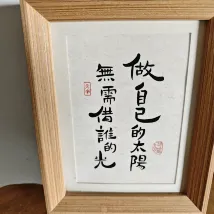 做自己的太陽
無需借誰的光